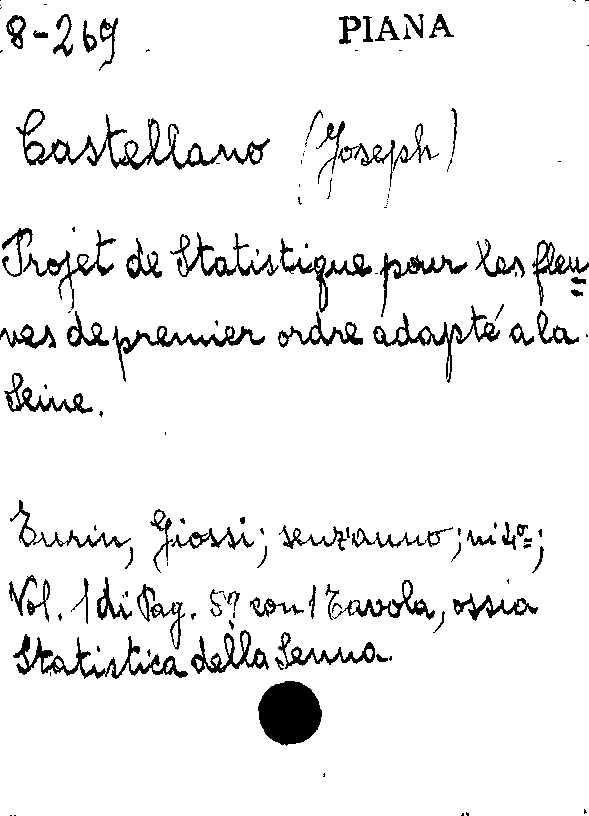 8-269 PIANA
Castellano (Joseph)
Projet de Statistique pour les fleu=
ves de premier ordre adapté a la
Seine.
Turin, Giossi; senz'anno; in 4º;
Vol. 1 di Pag. 57 con 1 Tavola, ossia
Statistica della Senna.